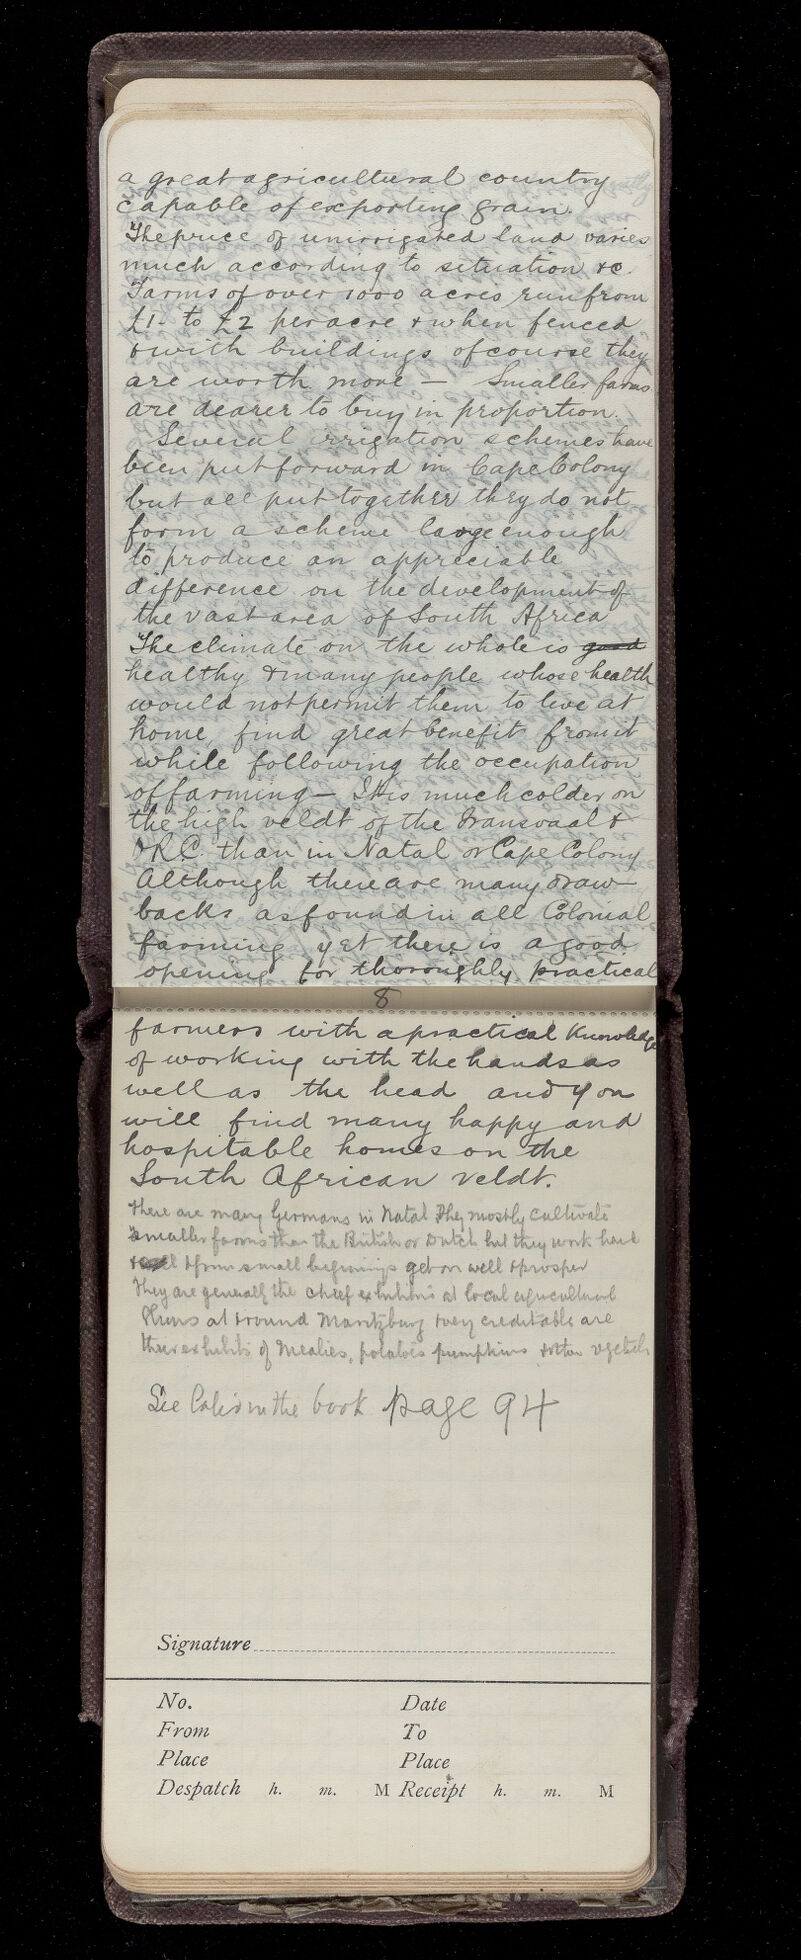 a great agricultural country
capable of exporting grain.
The price of unirrigated land varies
much according to situation &c.
Farms of over 1000 acres run from
£1- to £2 per acre & when fenced
& with buildings of course they
are worth more — Smaller farms
are dearer to buy in proportion.
Several irrigation schemes have
been put forward in Cape Colony
but all put together they do not
form a scheme large enough
to produce an appreciable
difference on the development of
the vast area of South Africa
The climate on the whole is good
healthy & many people whose health
would not permit them to live at
home, find great benefit from it
while following the occupation
of farming — It is much colder on
the high veldt of the Transvaal &
O.R.C. than in Natal or Cape Colony
Although there are many draw-
backs as found in all Colonial
farming yet there is a good
opening for thoroughly practical
8
farmers with a practical knowledge
of working with the hands as
well as the head and you
will find many happy and
hospitable homes on the
South African veldt.
There are many Germans in Natal They mostly cultivate
smaller farms than the British or Dutch but they work hard
& from small beginnings get on well & prosper
They are generally the chief exhibitors at local agricultural
Shows at & round Maritzburg & very creditable are
their exhibits of Mealies, potatoes pumpkins & other
See in the book page 94
Signature
No. Date
From To
Place Place
Despatch h. m. M Receipt h. m. M